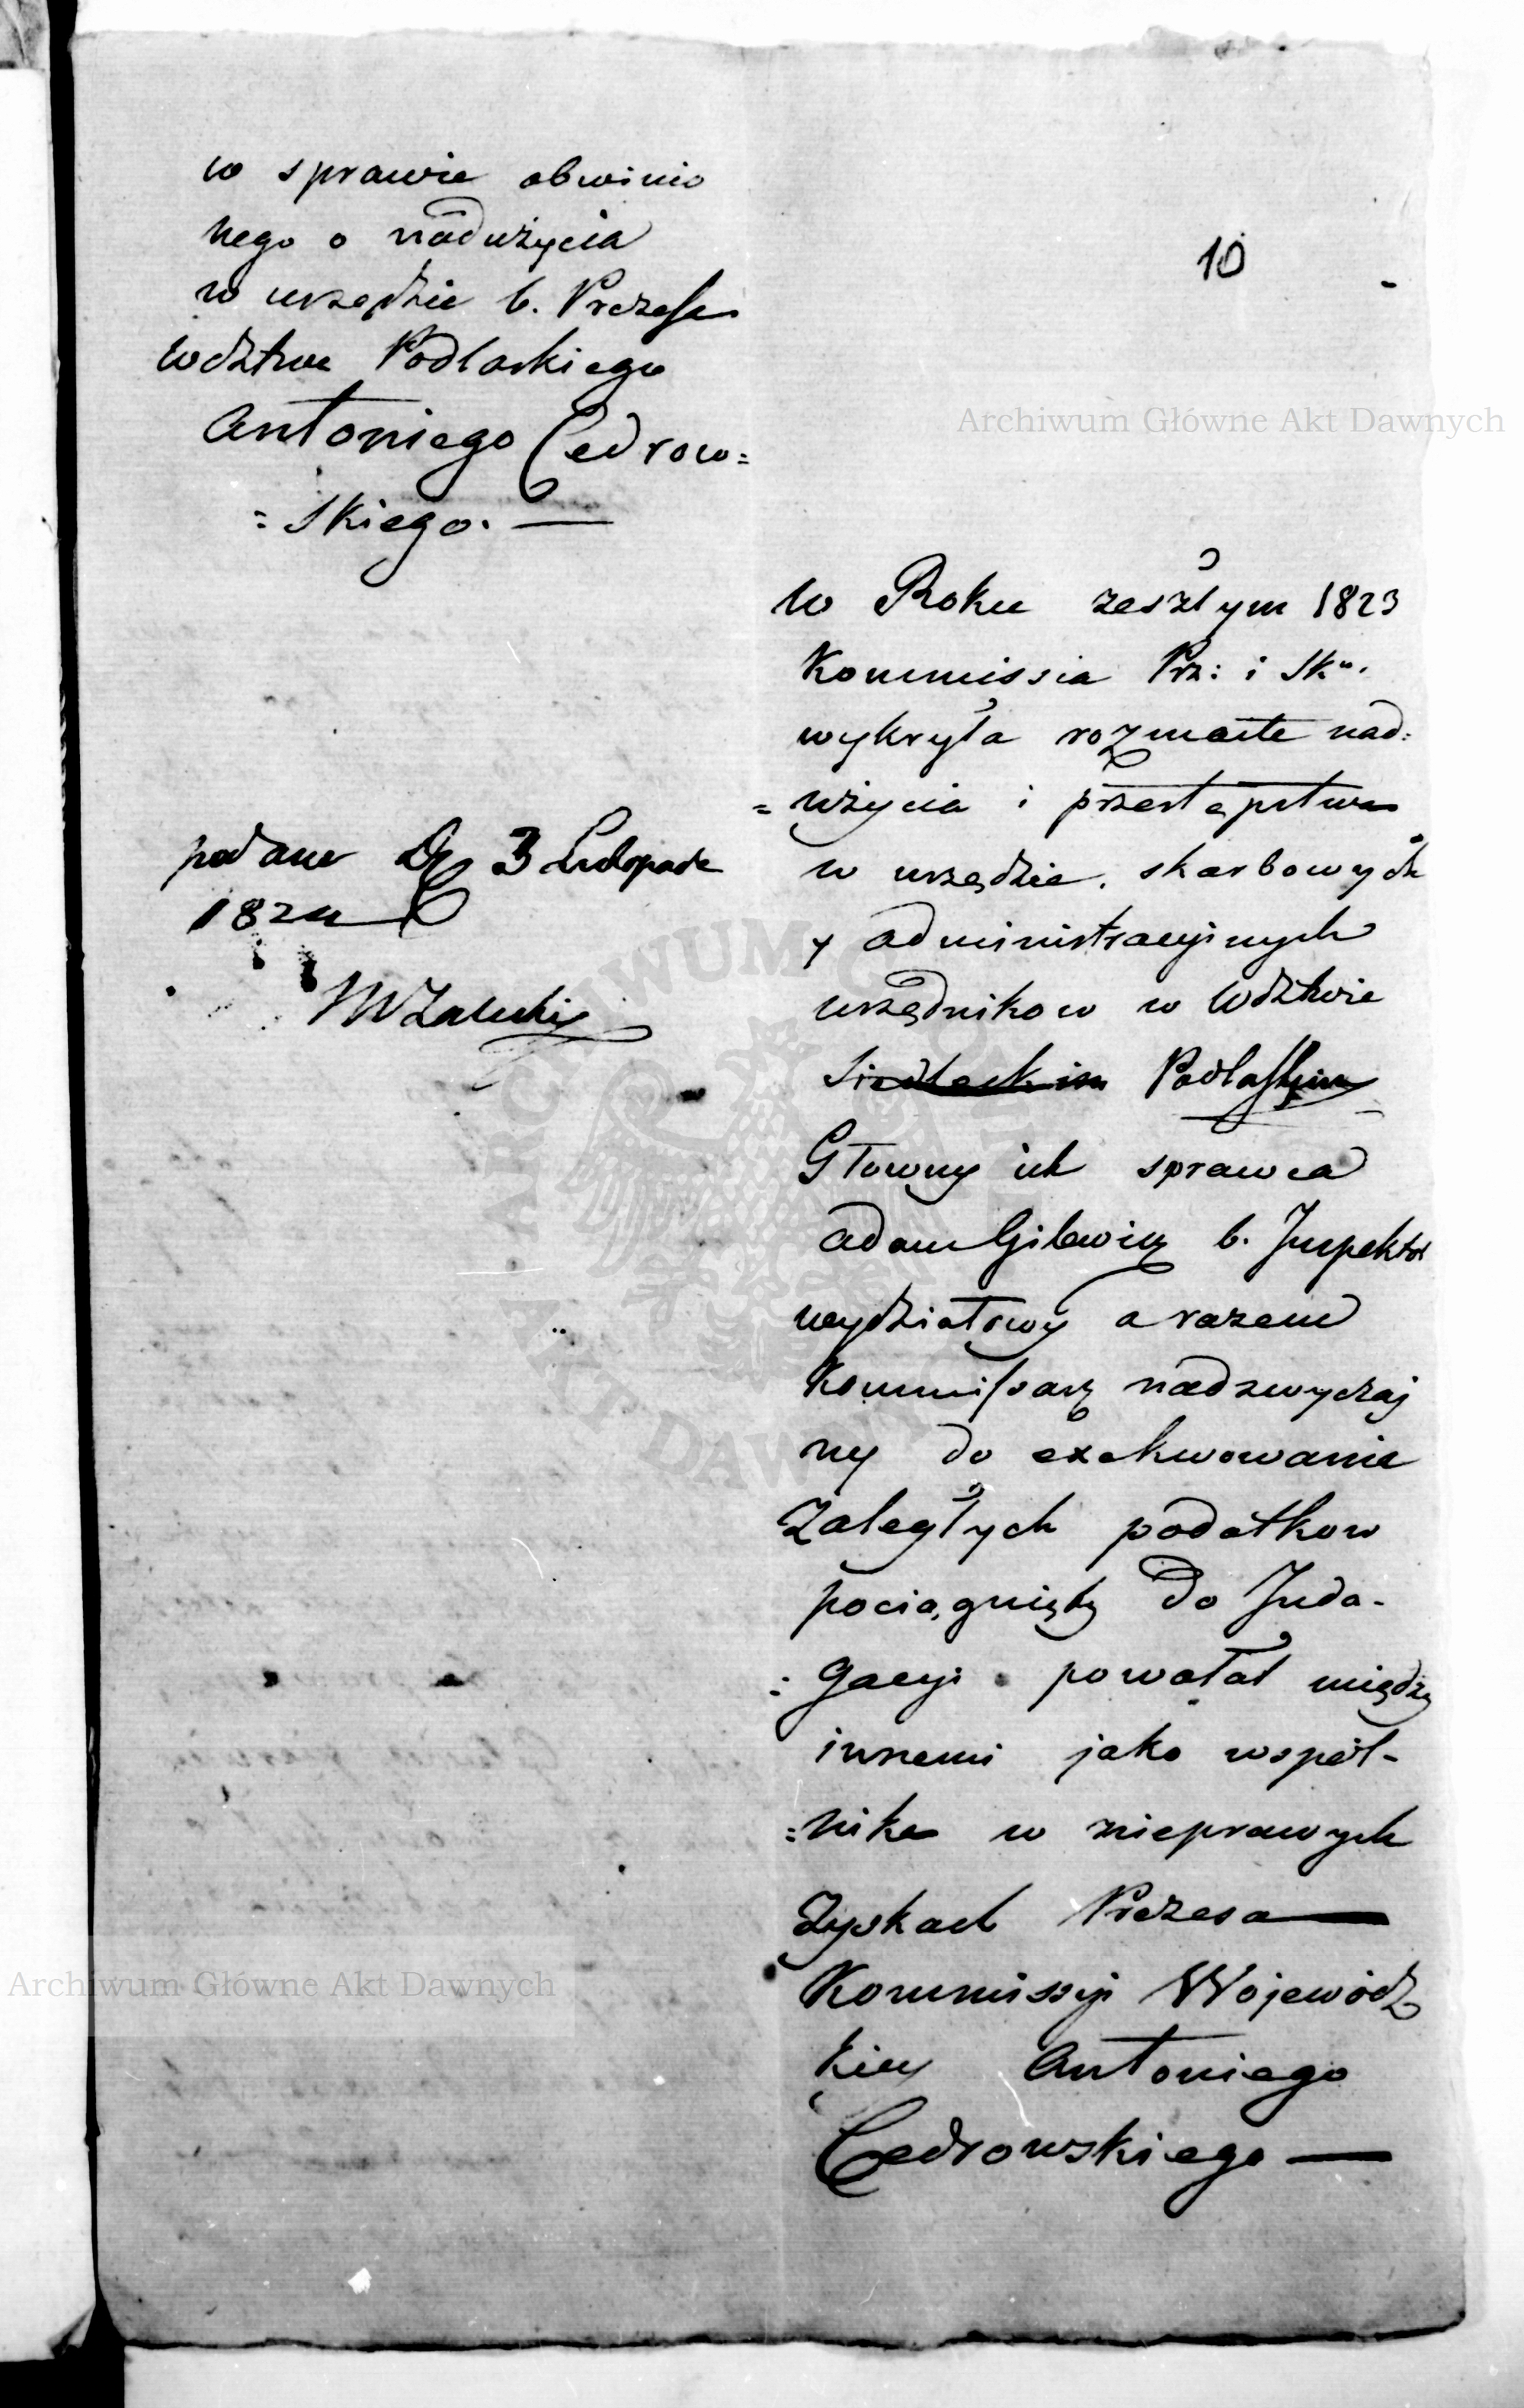 w sprawie obwinio
nego o nadużycia
w urzędzie b. Prezesa
Wdztwa Podlaskiego
Antoniego Cedrow=
=skiego. —
10
Archiwum Główne Akt Dawnych
W Roku zeszłym 1823
Kommissia Prz: i Sk.
wykryła rozmaite nad=
=użycia i przestępstwa
w urzędzie skarbowych
y administracyjnych
urzędnikow w Wdztwie
Siedleckim Podlaskim
podane D. 3 Listopada
1824
MZaleski
Głowny ich sprawca
Adam Gilewicz b. Inspektor
wydziałowy a razem
Kommissarz nadzwyczaj
ny do exekwowania
Zaległych podatkow
pociągnięty do Inda-
=gacyi powołał między
innemi jako wspól-
=nika w nieprawych
Zyskach Prezesa —
Kommissyi Wojewódz
kiey Antoniego
Cedrowskiego —
Archiwum Główne Akt Dawnych
ARCHIWUM GŁÓWNE AKT DAWNYCH